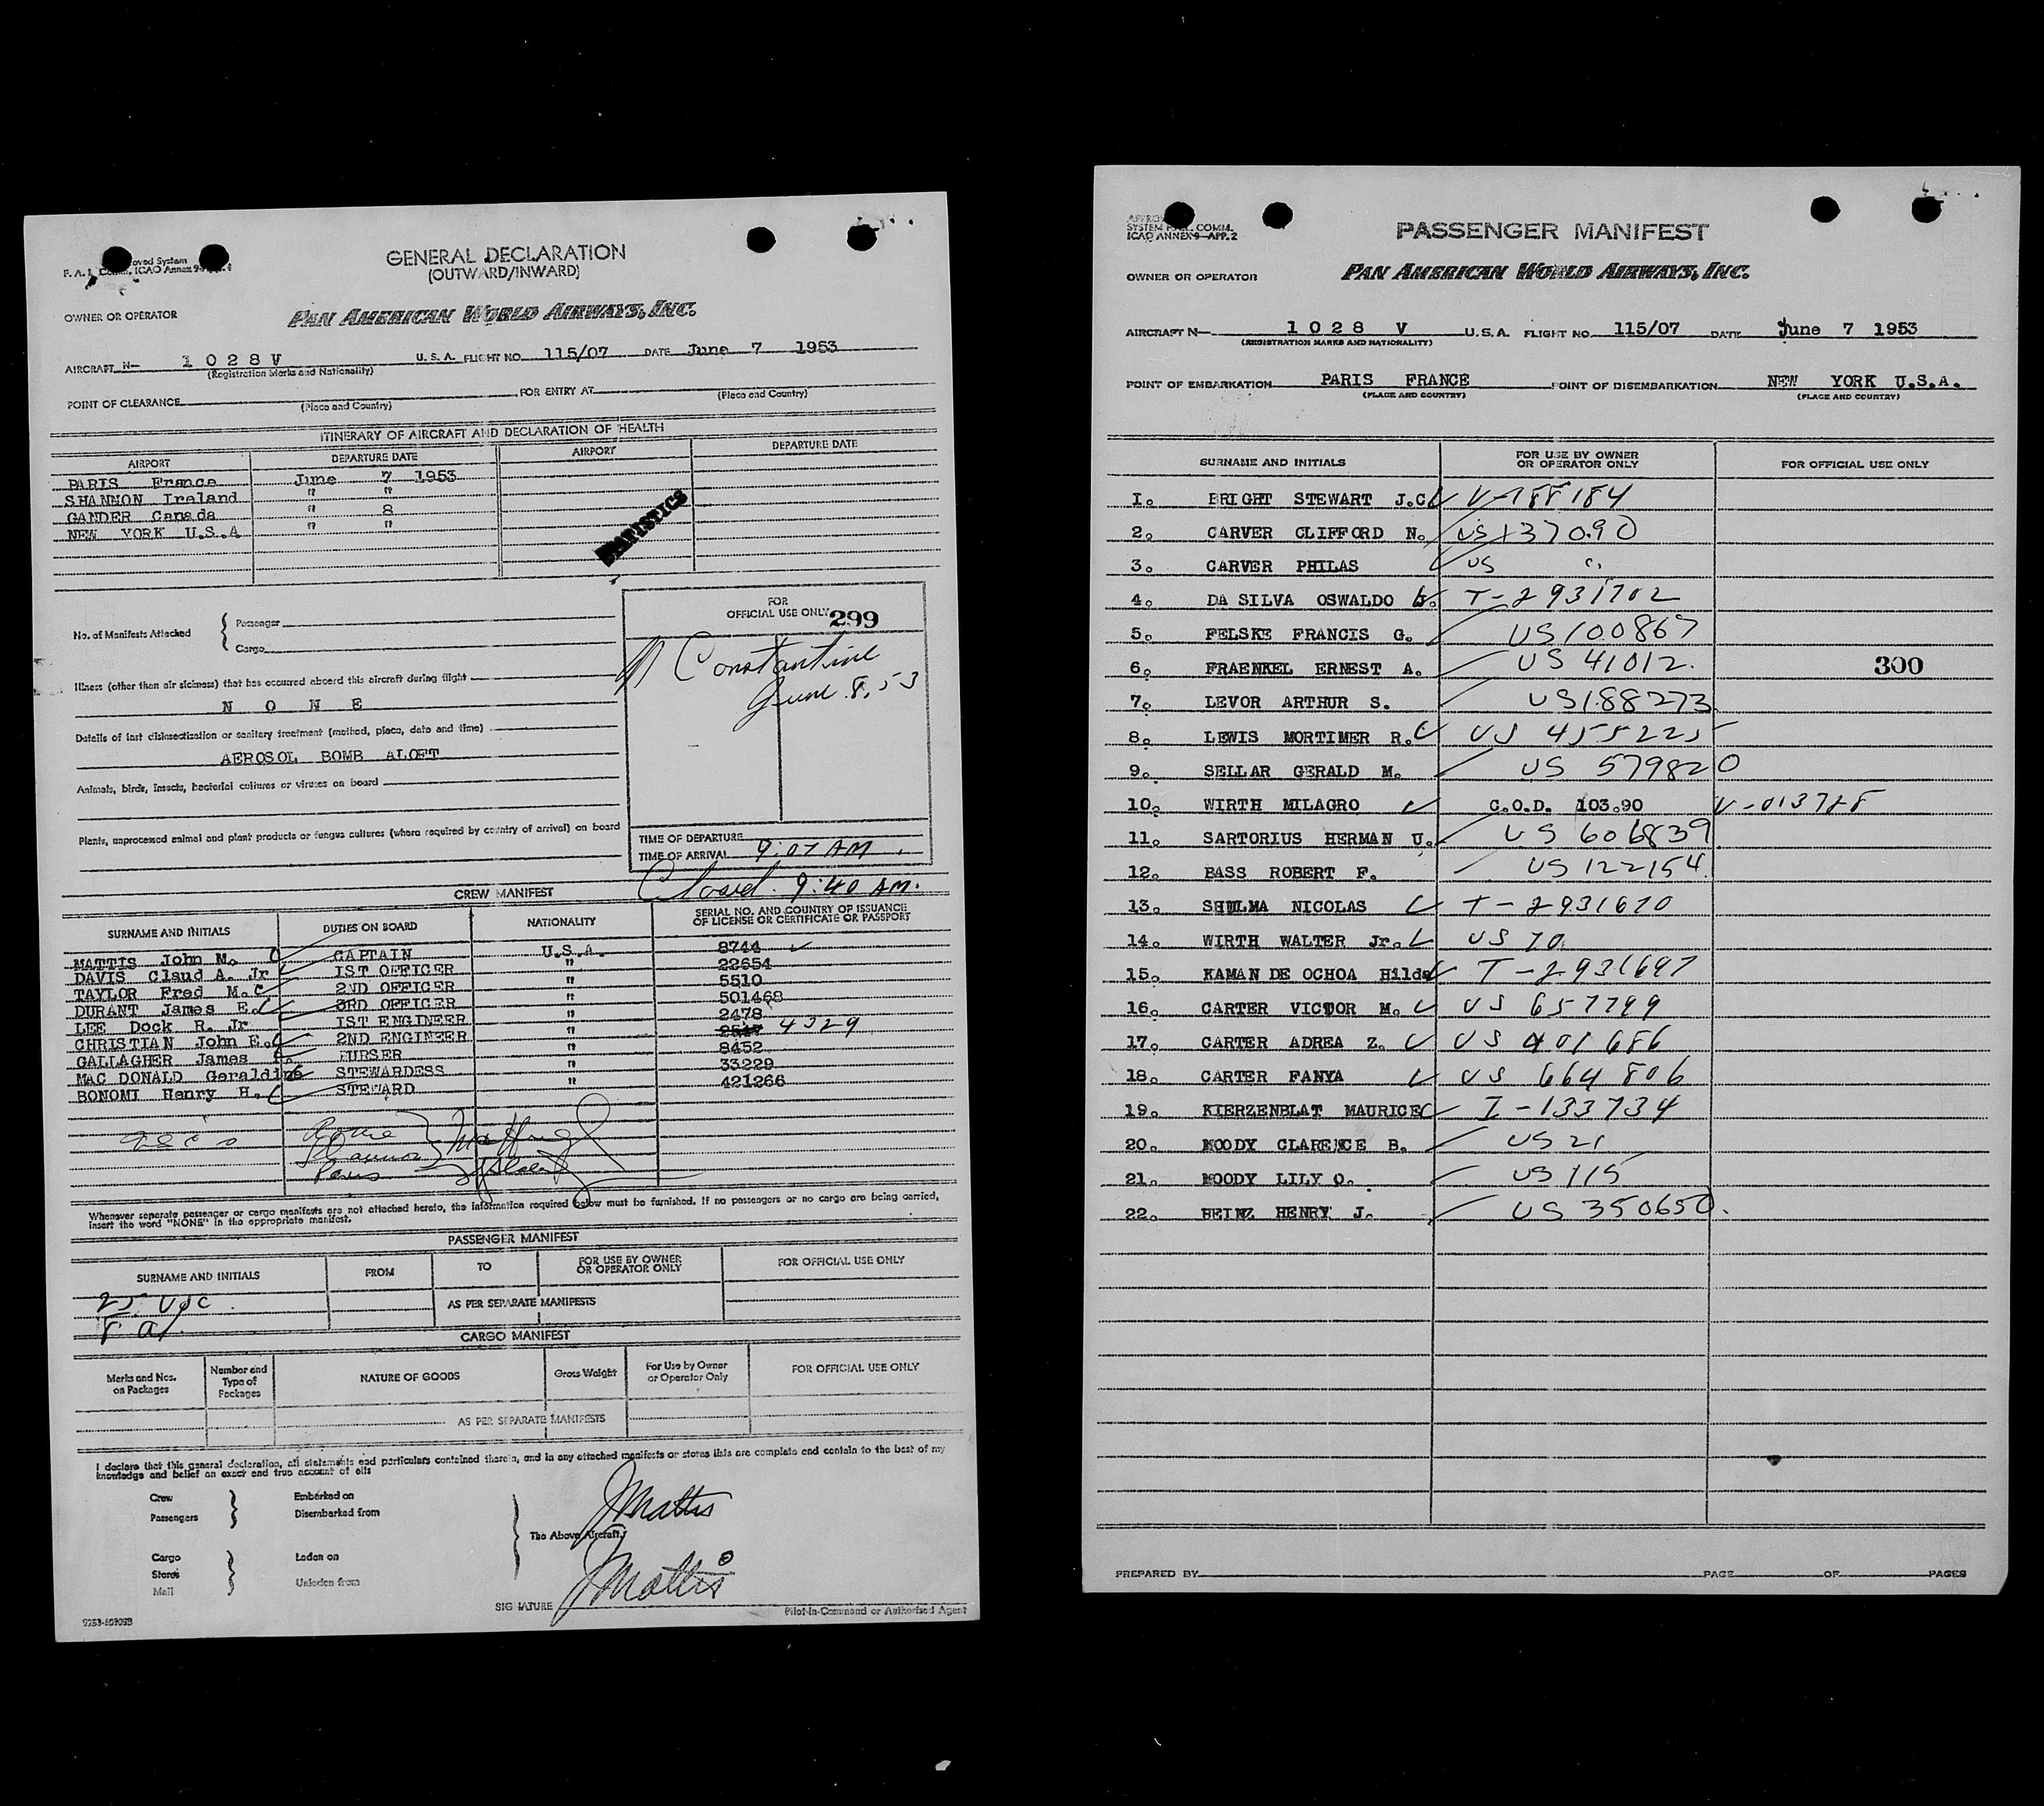 GENERAL DECLARATION
(OUTWARD/INWARD)
F. A. L. Comm. ICAO Annex 9
OWNER OR OPERATOR
PAN AMERICAN WORLD AIRWAYS, INC.
AIRCRAFT N- 1 0 2 8 V U. S. A. FLIGHT NO. 115/07 DATE June 7 1953
(Registration Marks and Nationality)
POINT OF CLEARANCE FOR ENTRY AT
(Place and Country) (Place and Country)
ITINERARY OF AIRCRAFT AND DECLARATION OF HEALTH
AIRPORT DEPARTURE DATE AIRPORT DEPARTURE DATE
PARIS France June 7 1953
SHANNON Ireland " "
GANDER Canada " 8
NEW YORK U.S.A " "
STATISTICS
No. of Manifests Attached { Passenger
Cargo
FOR
OFFICIAL USE ONLY 299
Constantine
June 8, 53
Illness (other than air sickness) that has occurred aboard this aircraft during flight
N O N E
Details of last disinsectization or sanitary treatment (method, place, date and time)
AEROSOL BOMB ALOFT
Animals, birds, insects, bacterial cultures or viruses on board
Plants, unprocessed animal and plant products or fungus cultures (where required by country of arrival) on board
TIME OF DEPARTURE
TIME OF ARRIVAL 9:07 AM.
9:40 AM.
CREW MANIFEST
SURNAME AND INITIALS DUTIES ON BOARD NATIONALITY SERIAL NO. AND COUNTRY OF ISSUANCE OF LICENSE OR CERTIFICATE OR PASSPORT
MATTIS John M. CAPTAIN U.S.A. 8744
DAVIS Claud A. Jr 1ST OFFICER " 22654
TAYLOR Fred M. 2ND OFFICER " 5510
DURANT James E. 3RD OFFICER " 501468
LEE Dock R. Jr 1ST ENGINEER " 2478
CHRISTIAN John E. 2ND ENGINEER " 4329
GALLAGHER James PURSER " 8452
MAC DONALD Geraldine STEWARDESS " 33229
BONOMI Henry H. STEWARD " 421266
Rome
Shannon
Paris
Whenever separate passenger or cargo manifests are not attached hereto, the information required below must be furnished. If no passengers or no cargo are being carried,
insert the word "NONE" in the appropriate manifest.
PASSENGER MANIFEST
SURNAME AND INITIALS FROM TO FOR USE BY OWNER OR OPERATOR ONLY FOR OFFICIAL USE ONLY
25 USC
8 al.
AS PER SEPARATE MANIFESTS
CARGO MANIFEST
Marks and Nos. on Packages Number and Type of Packages NATURE OF GOODS Gross Weight For Use by Owner or Operator Only FOR OFFICIAL USE ONLY
AS PER SEPARATE MANIFESTS
I declare that this general declaration, all statements and particulars contained therein, and in any attached manifests or stores lists are complete and contain to the best of my
knowledge and belief an exact and true account of alls
Crew Embarked on
Passengers Disembarked from
The Above Aircraft
JMattis
Cargo Laden on
Stores
Mail Unladen from
SIGNATURE JMattis
Pilot-in-Command or Authorized Agent
PASSENGER MANIFEST
SYSTEM F.A.L. COMM.
ICAO ANNEX 9-APP. 2
OWNER OR OPERATOR
PAN AMERICAN WORLD AIRWAYS, INC.
AIRCRAFT N- 1 0 2 8 V U.S.A. FLIGHT NO. 115/07 DATE June 7 1953
(REGISTRATION MARKS AND NATIONALITY)
POINT OF EMBARKATION PARIS FRANCE POINT OF DISEMBARKATION NEW YORK U.S.A.
(PLACE AND COUNTRY) (PLACE AND COUNTRY)
SURNAME AND INITIALS FOR USE BY OWNER OR OPERATOR ONLY FOR OFFICIAL USE ONLY
1. BRIGHT STEWART J.C. V-188184
2. CARVER CLIFFORD N. US 137090
3. CARVER PHILAS US "
4. DA SILVA OSWALDO J. T-2931702
5. FELSKE FRANCIS G. US 100867
6. FRAENKEL ERNEST A. US 41012. 300
7. LEVOR ARTHUR S. US 188273
8. LEWIS MORTIMER R. US 455225
9. SELLAR GERALD M. US 579820
10. WIRTH MILAGRO C.O.D. 103.90 V-013728
11. SARTORIUS HERMAN U. US 606839
12. BASS ROBERT F. US 122154
13. SHULMA NICOLAS T-2931670
14. WIRTH WALTER Jr. US 70
15. KAMAN DE OCHOA Hilda T-2931697
16. CARTER VICTOR M. US 657799
17. CARTER ADREA Z. US 401686
18. CARTER FANYA US 664806
19. KIERZENBLAT MAURICE I-133734
20. MOODY CLARENCE B. US 21
21. MOODY LILY O. US 115
22. HEINZ HENRY J. US 350650.
PREPARED BY PAGE OF PAGES